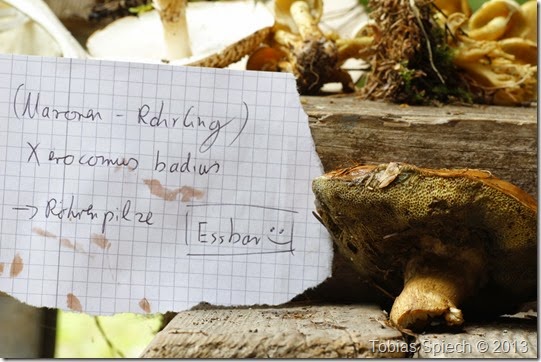 (Maronen - Röhrling)
Xerocomus badius
→ Röhrenpilze Essbar :)
Tobias Spiech © 2013